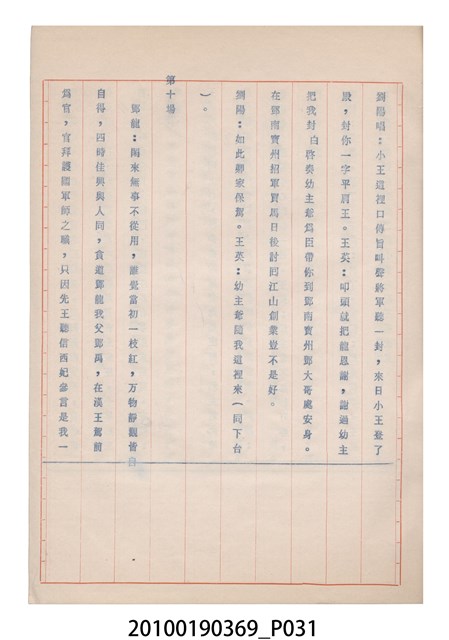 劉陽唱：小王這裡口傳旨叫聲將軍聽一封，來日小王登了
殿，封你一字平肩王。王英：叩頭就把龍恩謝，謝過幼主
把我封 白啓奏幼主爺為臣帶你到鄧南寳州鄧大哥處安身。
在鄧南寳州招軍買馬日後討囘江山創業豈不是好。
劉陽：如此卿家保駕。王英：幼主爺隨我這裡來（同下台
）。
第十場
鄧龍：閑來無事不從用，誰覺當初一枝紅，万物靜觀皆自
自得，四時佳興與人同，貧道鄧龍我父鄧禹，在漢王駕前
為官，官拜護國軍師之職，只因先王聽信西妃參言是我一
20100190369_P031